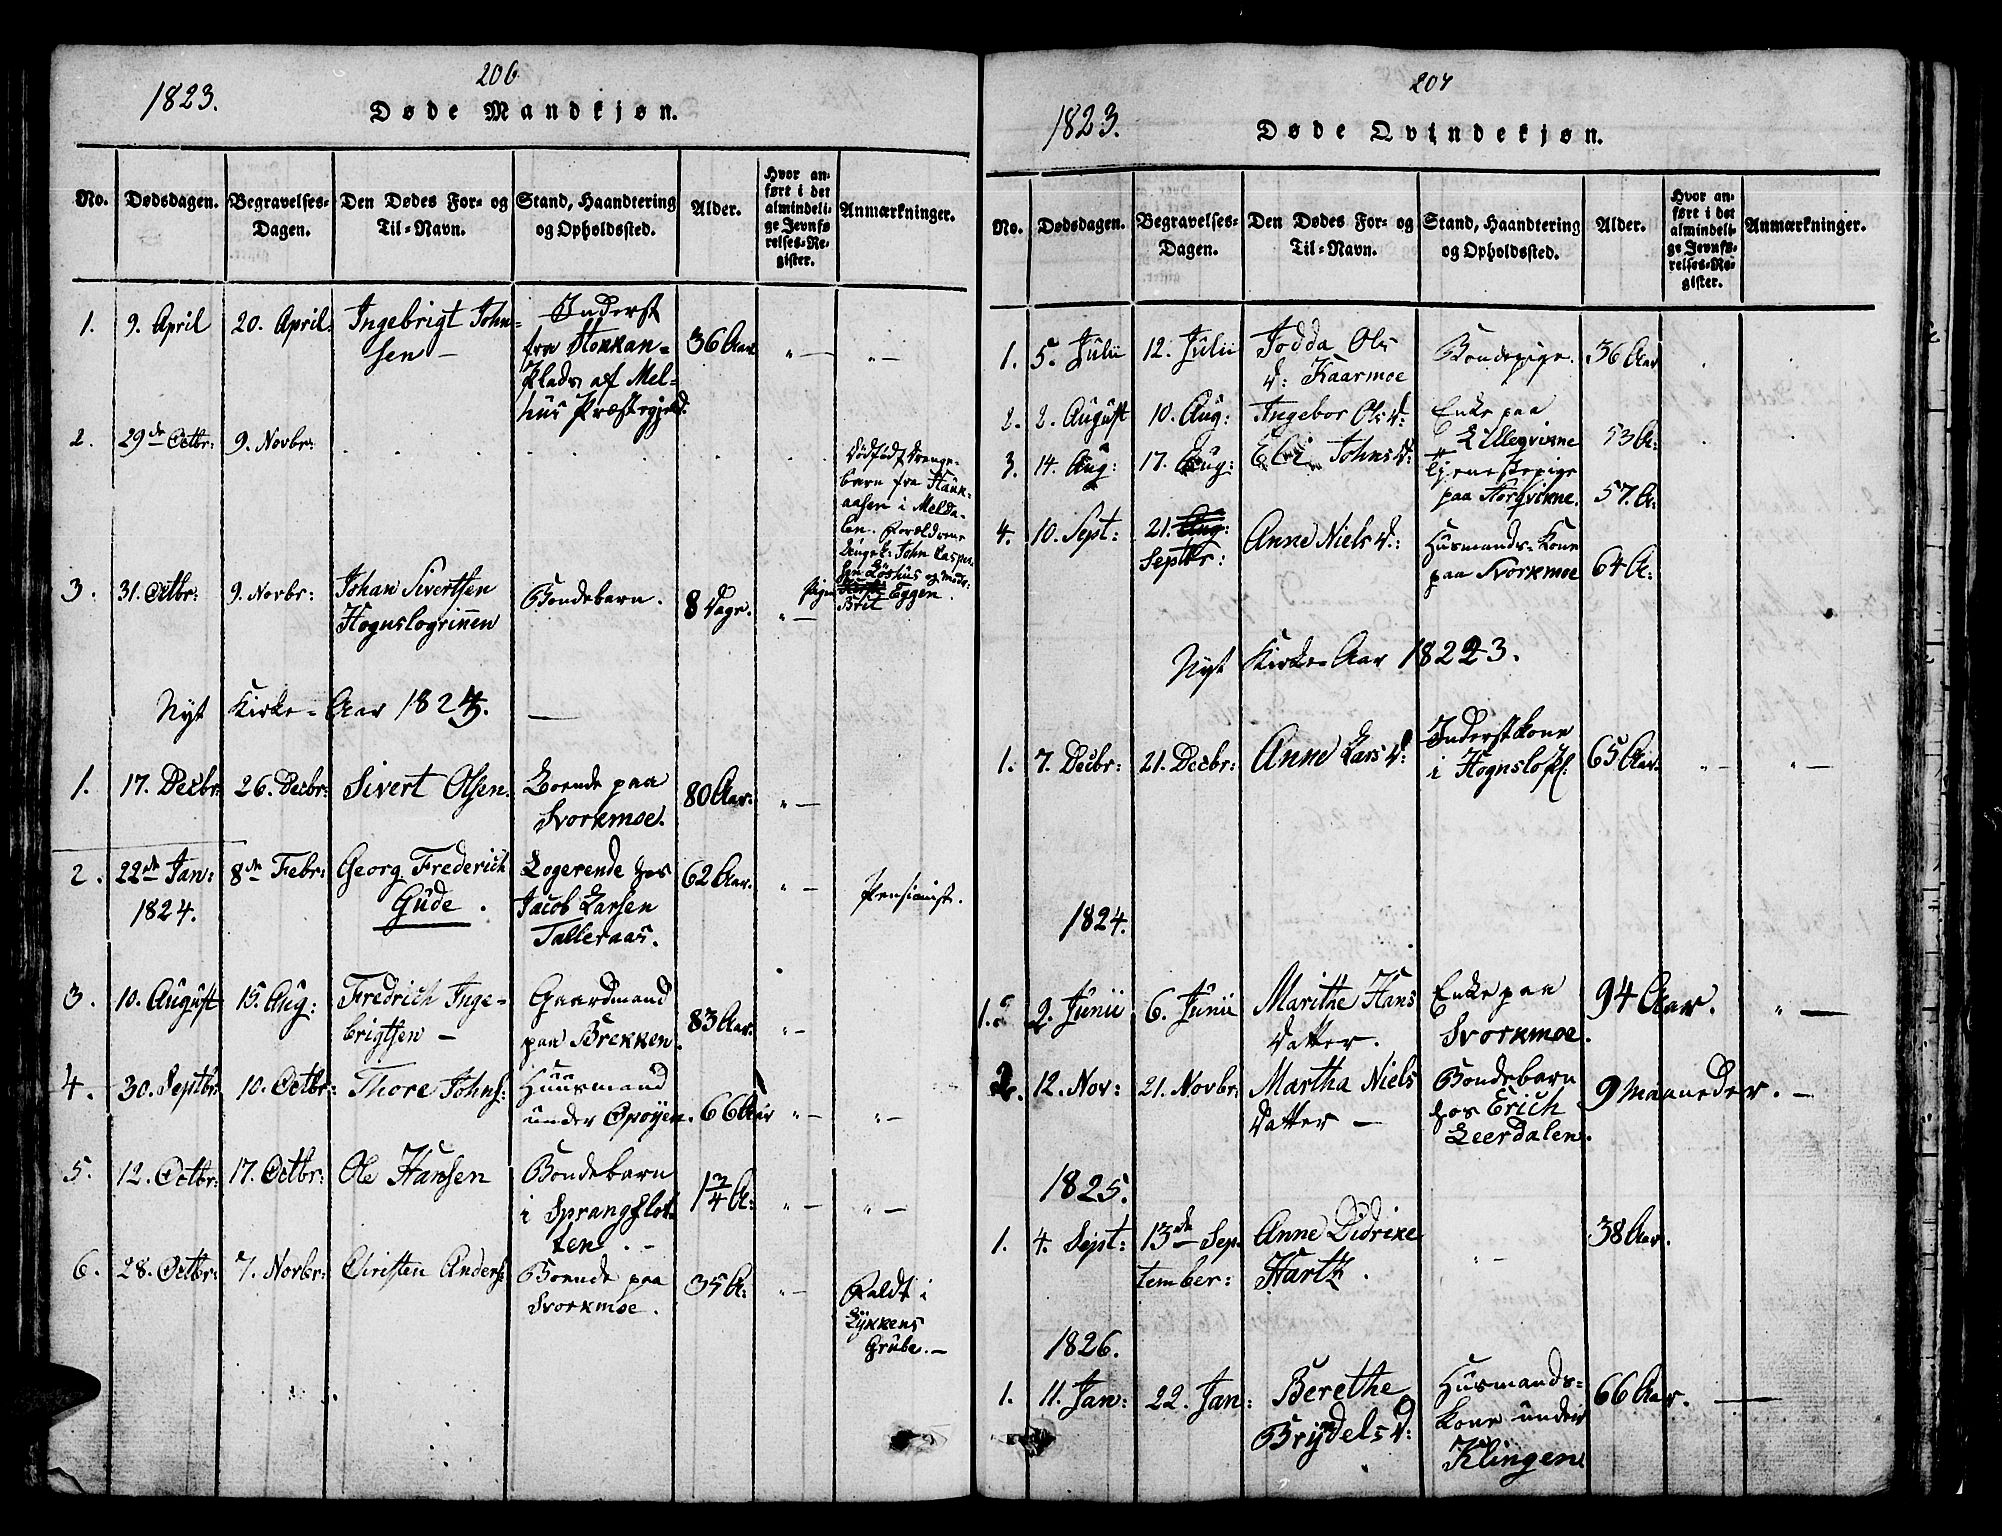 206
1823.
Døde Mandkjøn.
No. Dødsdagen. Begravelses-Dagen. Den Dødes For- og Til-Navn. Stand, Haandtering og Opholdssted. Alder. Hvor anført i det almindelige Jevnførelses-Register. Anmærkninger.
1. 9. April 20. April: Ingebrigt John-
sen — Inderst
fra Stokkan-
Plads af Mel-
huus Præstegjeld. 36 Aar „— „—
2. 29de Octbr: 9. Novbr: Dødfødt Drenge-
barn fra Hauk-
aasen i Melda-
len. Forældrene
Ungek: John Caspe
sen Löshus og
Pigen Brit Eggen.
3. 31. Octbr: 9. Novbr: Johan Sivertsen
Hognslogrinnen Bondebarn. 8 Dage. „—
Nyt Kirke-Aar 1823. —
1. 17. Decbr: 26. Decbr: Sivert Olsen. Boende paa
Svorkmoe. 80 Aar. „—
2. 22de Jan: 8de Febr: Georg Frederich
1824. Gude. Logerende hos
Jacob Larsen
Talleraas. 62 Aar. „— Pensionist.
3. 10. August 15. Aug: Fredrich Inge-
brigtsen — Gaardmand
paa Brekken. 83 Aar. „—
4. 30. Septbr: 10. Octbr: Thore Johns: Huusmand
under Opøyen. 66 Aar „— „—
5. 12. Octbr: 17. Octbr: Ole Hansen Bondebarn
i Sprangslot-
ten. — 1 3/4 A: „— „—
6. 28. Octbr: 7. Novbr: Christen Anders: Boende paa
Svorkmoe. 35 A: „— Faldt i
Lykkens
Grube. —
207
1823.
Døde Qvindekjøn.
No. Dødsdagen. Begravelses-Dagen. Den Dødes For- og Til-Navn. Stand, Haandtering og Opholdssted. Alder. Hvor anført i det almindelige Jevnførelses-Register. Anmærkninger.
1. 5. Julii 12. Julii Jodda Ols
D: Kaarmoe Bondepige. 36 Aar
2. 2. August 10. Aug: Ingebor Ols D: Enke paa
Lillegvirne 53 A:
3. 14. Aug: 17. Aug: Eli Johns D: Tjenestepige
paa Storgvirne. 57. A:
4. 10. Sept: 21. Aug:
Septbr: Anne Niels D: Husmands-Kone
paa Svorkmoe 64 A:
Nyt Kirke-Aar 1823.
1. 7. Decbr: 21. Decbr: Anne Lars D: Inderstkone
i Hognslo Pl: 65 Aar. „— „—
1824.
1. 2. Junii 6. Junii Marithe Hans
Datter. Enke paa
Svorkmoe. 94 Aar. „—
2. 12. Nov: 21. Novbr: Martha Niels
Datter — Bondebarn
hos Erich
Leerdalen. 9 Maaneder. —
1825.
1. 4. Sept: 13de Sep-
tember: Anne Didrike
Hartz. „ 38 Aar.
1826.
1. 11. Jan: 22. Jan: Berethe
Brydels D: Husmands-
kone under
Klingen 66 Aar. —